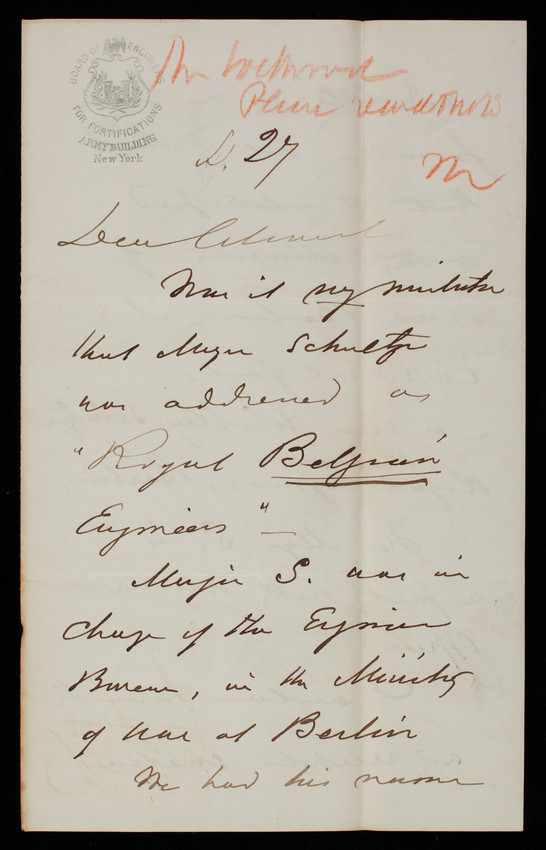 BOARD OF ENGINEERS
FOR FORTIFICATIONS
ARMY BUILDING
New York
Mr
Please
27
Dear Colonel
Was it my mistake
that Major Schultze
was addressed as
"Royal Belgian
Engineers" —
Major S. was in
charge of the Engineer
Bureau, in the Ministry
of War at Berlin
We had his name